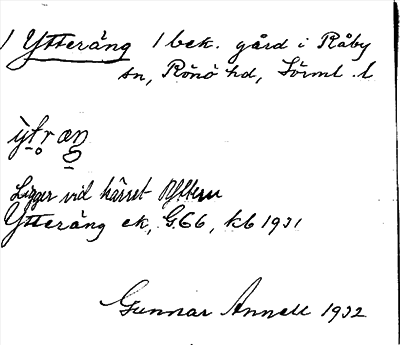 1 Ytteräng 1 bek. gård i Råby
sn, Rönö hd, Sörml. l
ỳtr æŋ
Ligger vid kärret
Ytteräng ek, G66, kb 1931
Gunnar Annell 1932